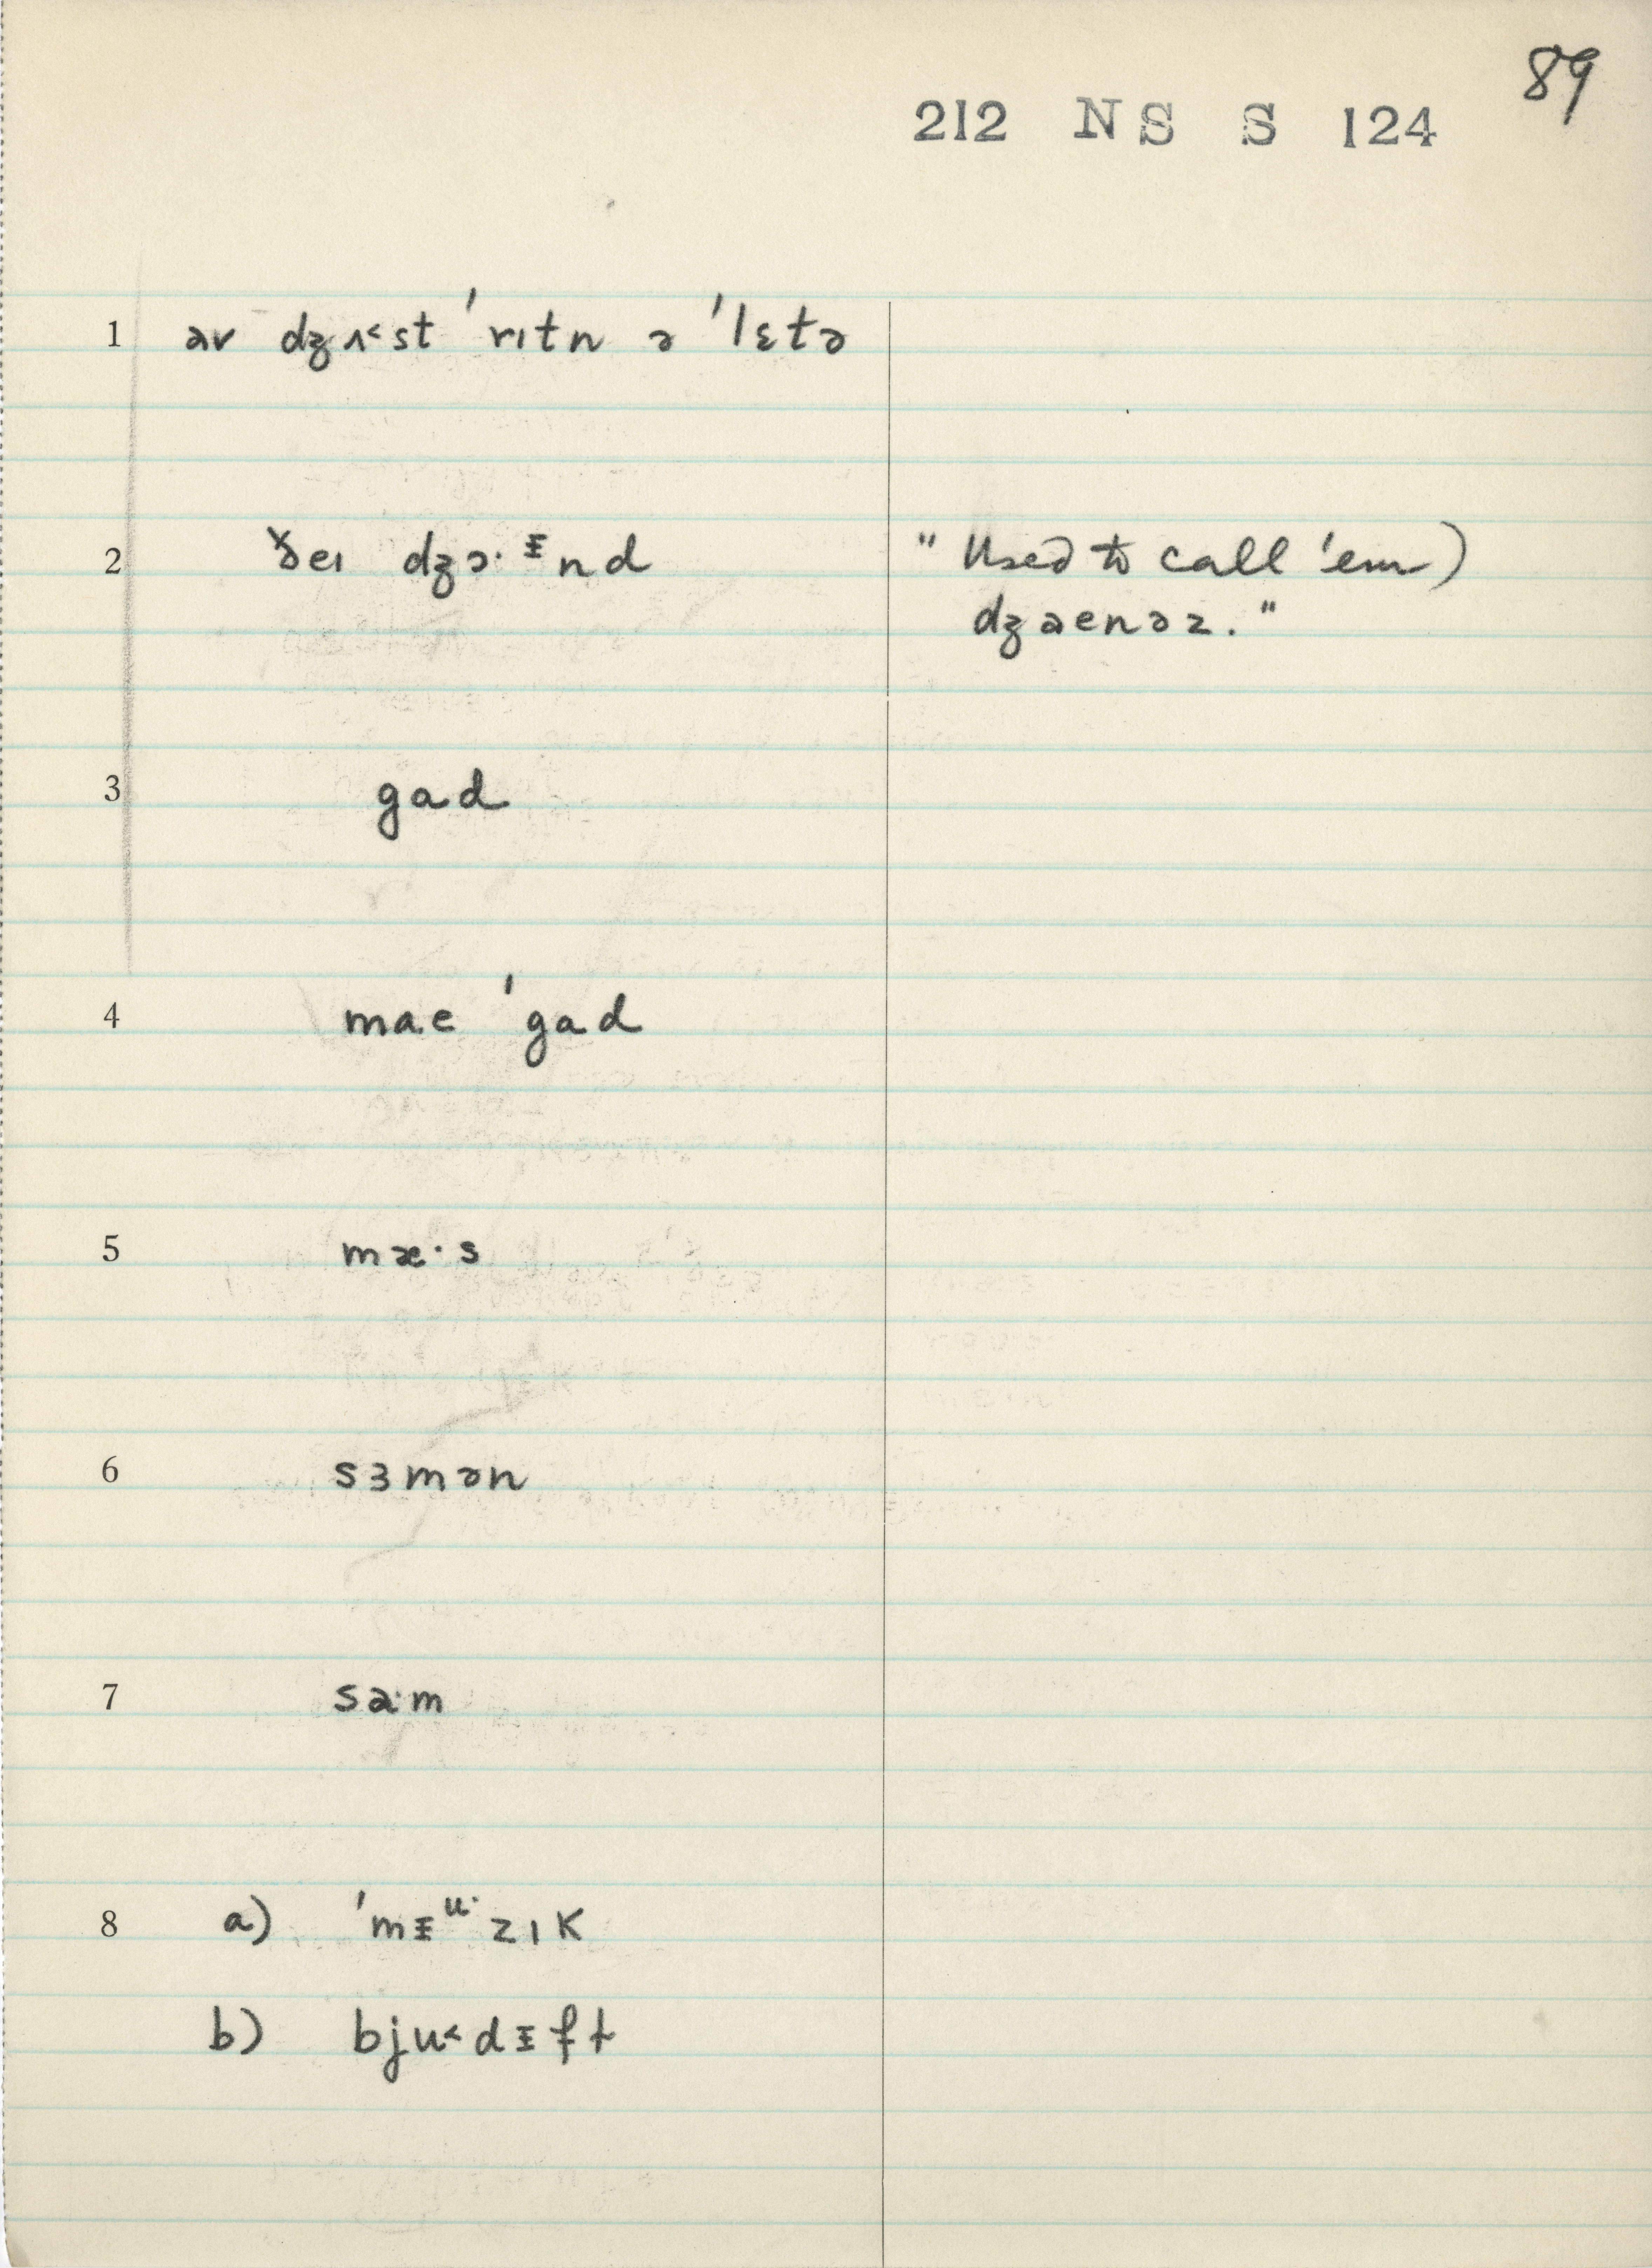 89
212 NS S 124
1 əv dʒʌ˂st ˈrɪtn ə ˈlɛtə
2 ðeɪ dʒɔ·ᵻnd " Used to call 'em)
dʒaenəz."
3 gad
4 mae ˈgad
5 mæ·s
6 sɜmən
7 sa·m
8 a) ˈmᵻᵘ·zɪk
b) bju˂dᵻft